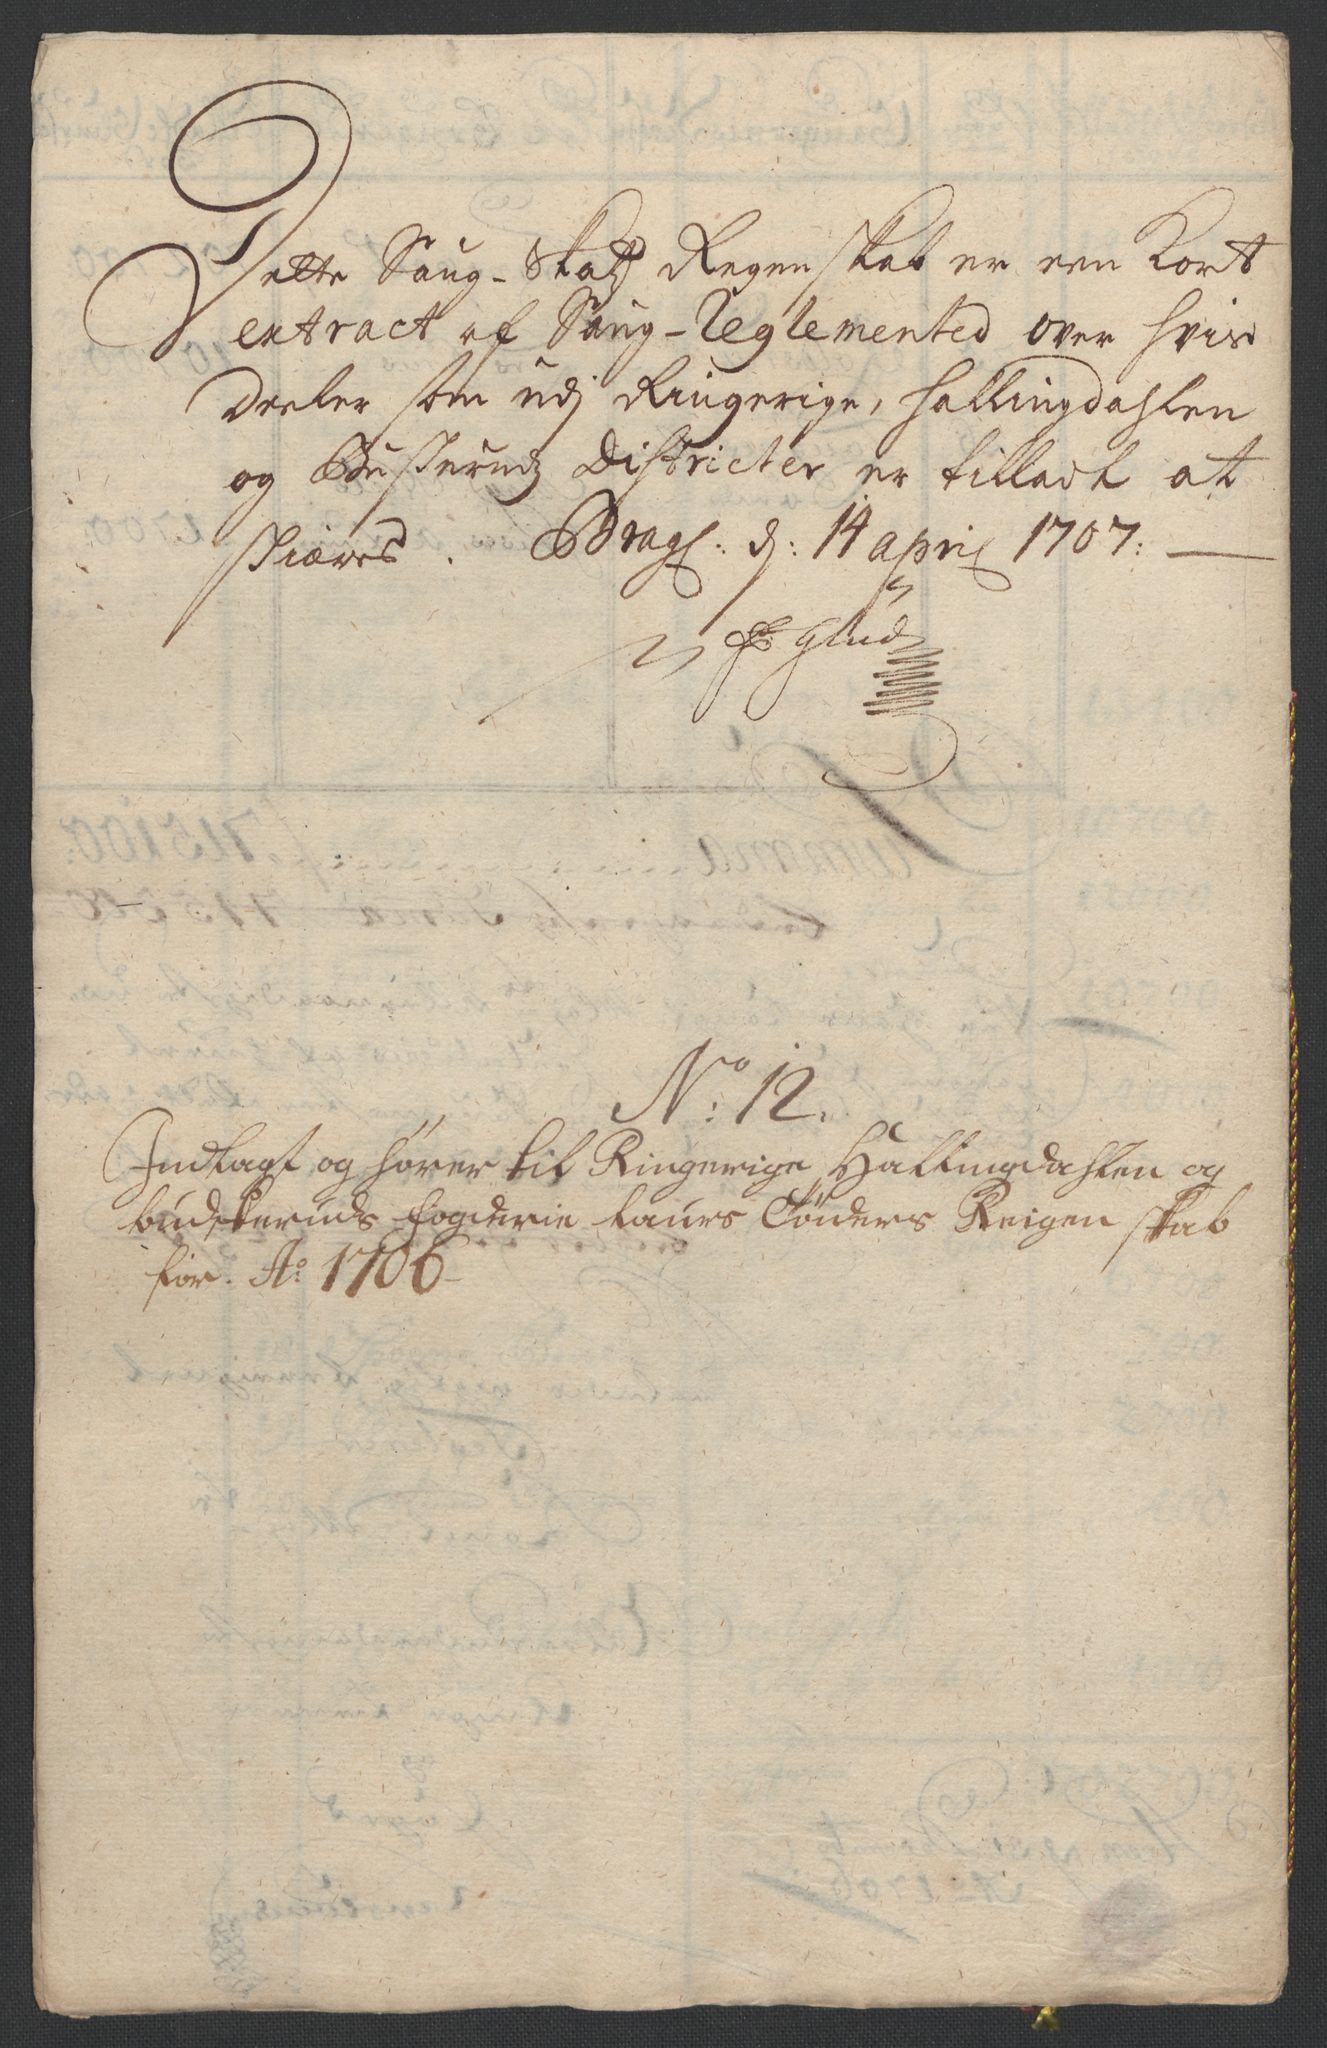 Dette Saug-Skatz Regenskab er een Kort
extract af Saug-Reglemented over hvis
Deeler som udj Ringerige, Hallingdahlen
og Buskeruds Districter er tilladt at
skiæres. Brag: d: 14 april 1707:
Glud
No: 12.
Indlagt og hører til Ringerige Hallingdahlen og
budskeruds fogderie Laurs Tønders Reigenskab
for. Ao: 1706